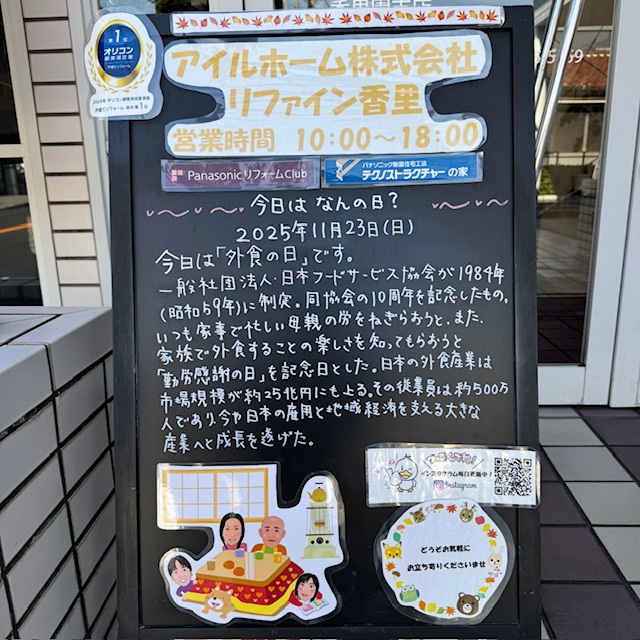 第1位
オリコン
顧客満足度
戸建てリフォーム
アイルホーム株式会社
リファイン香里
営業時間 10:00〜18:00
PanasonicリフォームClub
パナソニック耐震住宅工法
テクノストラクチャーの家
今日は なんの日?
2025年11月23日(日)
今日は「外食の日」です。
一般社団法人・日本フードサービス協会が1984年
(昭和59年)に制定。同協会の10周年を記念したもの。
いつも家事で忙しい母親の労をねぎらおうと、また、
家族で外食することの楽しさを知ってもらおうと
「勤労感謝の日」を記念日とした。日本の外食産業は
市場規模が約25兆円にも上る。その従業員は約500万
人であり、今や日本の雇用と地域経済を支える大きな
産業へと成長を遂げた。
インスタグラム毎日更新中!
Instagram
どうぞお気軽に
お立ち寄りくださいませ